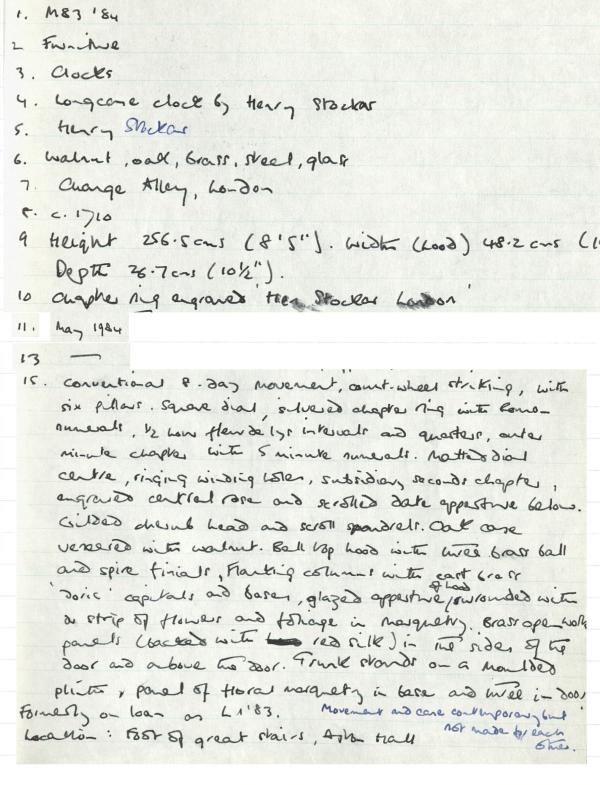 1. M83 '84
2 Furniture
3. Clocks
4. Longcase clock by Henry Stockar
5. Henry Stockar
6. Walnut, oak, brass, steel, glass
7. Change Alley, London
8. c. 1710
9 Height 256.5 cms (8'5"). Width (hood) 48.2 cms (1
Depth 26.7 cms (10½").
10 Chapter ring engraved 'Hen Stockar London'
11. May 1984
13 —
15. Conventional 8-day movement, count-wheel striking, with
six pillars. Square dial, silvered chapter ring with Roman
numerals, ½ hour fleur de lys intervals and quarters, outer
minute chapter with 5 minute numerals. Matted dial
centre, ringing winding holes, subsidiary seconds chapter,
engraved central rose and scrolled date apperture below.
Gilded cherub head and scroll spandrels. Oak case
veneered with walnut. Ball top hood with three brass ball
and spire finials, flanking columns with cast brass
'doric' capitals and bases, glazed apperture of hood surrounded with
a strip of flowers and foliage in marquetry. Brass openwork
panels (backed with red silk) in the sides of the
door and above the door. Trunk stands on a moulded
plinth, panel of floral marquetry in base and three in door
Formerly on loan as L1'83. Movement and case contemporary but
not made for each
other.
Location: Foot of great stairs, Aston Hall